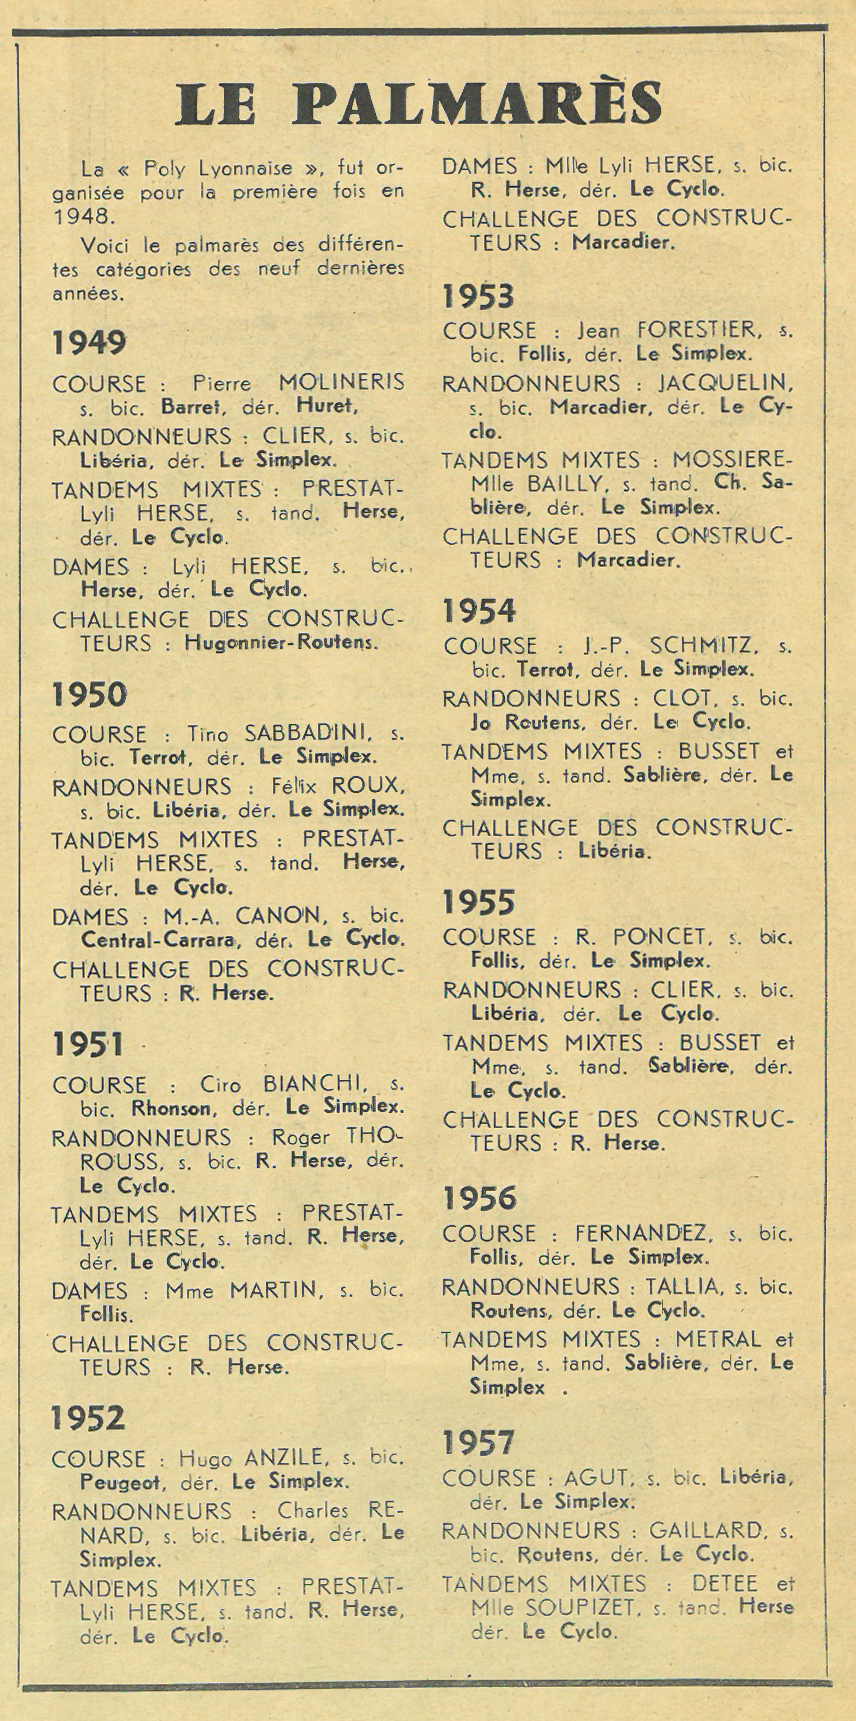 LE PALMARÈS
La « Poly Lyonnaise », fut or-
ganisée pour la première fois en
1948.
Voici le palmarès des différen-
tes catégories des neuf dernières
années.
1949
COURSE : Pierre MOLINERIS
s. bic. Barret, dér. Huret,
RANDONNEURS : CLIER, s. bic.
Libéria, dér. Le Simplex.
TANDEMS MIXTES : PRESTAT-
Lyli HERSE, s. tand. Herse,
dér. Le Cyclo.
DAMES : Lyli HERSE, s. bic.
Herse, dér. Le Cyclo.
CHALLENGE DES CONSTRUC-
TEURS : Hugonnier-Routens.
1950
COURSE : Tino SABBADINI, s.
bic. Terrot, dér. Le Simplex.
RANDONNEURS : Félix ROUX,
s. bic. Libéria, dér. Le Simplex.
TANDEMS MIXTES : PRESTAT-
Lyli HERSE, s. tand. Herse,
dér. Le Cyclo.
DAMES : M.-A. CANON, s. bic.
Central-Carrara, dér. Le Cyclo.
CHALLENGE DES CONSTRUC-
TEURS : R. Herse.
1951
COURSE : Ciro BIANCHI, s.
bic. Rhonson, dér. Le Simplex.
RANDONNEURS : Roger THO-
ROUSS, s. bic. R. Herse, dér.
Le Cyclo.
TANDEMS MIXTES : PRESTAT-
Lyli HERSE, s. tand. R. Herse,
dér. Le Cyclo.
DAMES : Mme MARTIN, s. bic.
Follis.
CHALLENGE DES CONSTRUC-
TEURS : R. Herse.
1952
COURSE : Hugo ANZILE, s. bic.
Peugeot, dér. Le Simplex.
RANDONNEURS : Charles RE-
NARD, s. bic. Libéria, dér. Le
Simplex.
TANDEMS MIXTES : PRESTAT-
Lyli HERSE, s. tand. R. Herse,
dér. Le Cyclo.
DAMES : Mlle Lyli HERSE, s. bic.
R. Herse, dér. Le Cyclo.
CHALLENGE DES CONSTRUC-
TEURS : Marcadier.
1953
COURSE : Jean FORESTIER, s.
bic. Follis, dér. Le Simplex.
RANDONNEURS : JACQUELIN,
s. bic. Marcadier, dér. Le Cy-
clo.
TANDEMS MIXTES : MOSSIERE-
Mlle BAILLY, s. tand. Ch. Sa-
blière, dér. Le Simplex.
CHALLENGE DES CONSTRUC-
TEURS : Marcadier.
1954
COURSE : J.-P. SCHMITZ, s.
bic. Terrot, dér. Le Simplex.
RANDONNEURS : CLOT, s. bic.
Jo Routens, dér. Le Cyclo.
TANDEMS MIXTES : BUSSET et
Mme, s. tand. Sablière, dér. Le
Simplex.
CHALLENGE DES CONSTRUC-
TEURS : Libéria.
1955
COURSE : R. PONCET, s. bic.
Follis, dér. Le Simplex.
RANDONNEURS : CLIER, s. bic.
Libéria, dér. Le Cyclo.
TANDEMS MIXTES : BUSSET et
Mme, s. tand. Sablière, dér.
Le Cyclo.
CHALLENGE DES CONSTRUC-
TEURS : R. Herse.
1956
COURSE : FERNANDEZ, s. bic.
Follis, dér. Le Simplex.
RANDONNEURS : TALLIA, s. bic.
Routens, dér. Le Cyclo.
TANDEMS MIXTES : METRAL et
Mme, s. tand. Sablière, dér. Le
Simplex .
1957
COURSE : AGUT, s. bic. Libéria,
dér. Le Simplex.
RANDONNEURS : GAILLARD, s.
bic. Routens, dér. Le Cyclo.
TANDEMS MIXTES : DETEE et
Mlle SOUPIZET, s. tand. Herse
dér. Le Cyclo.